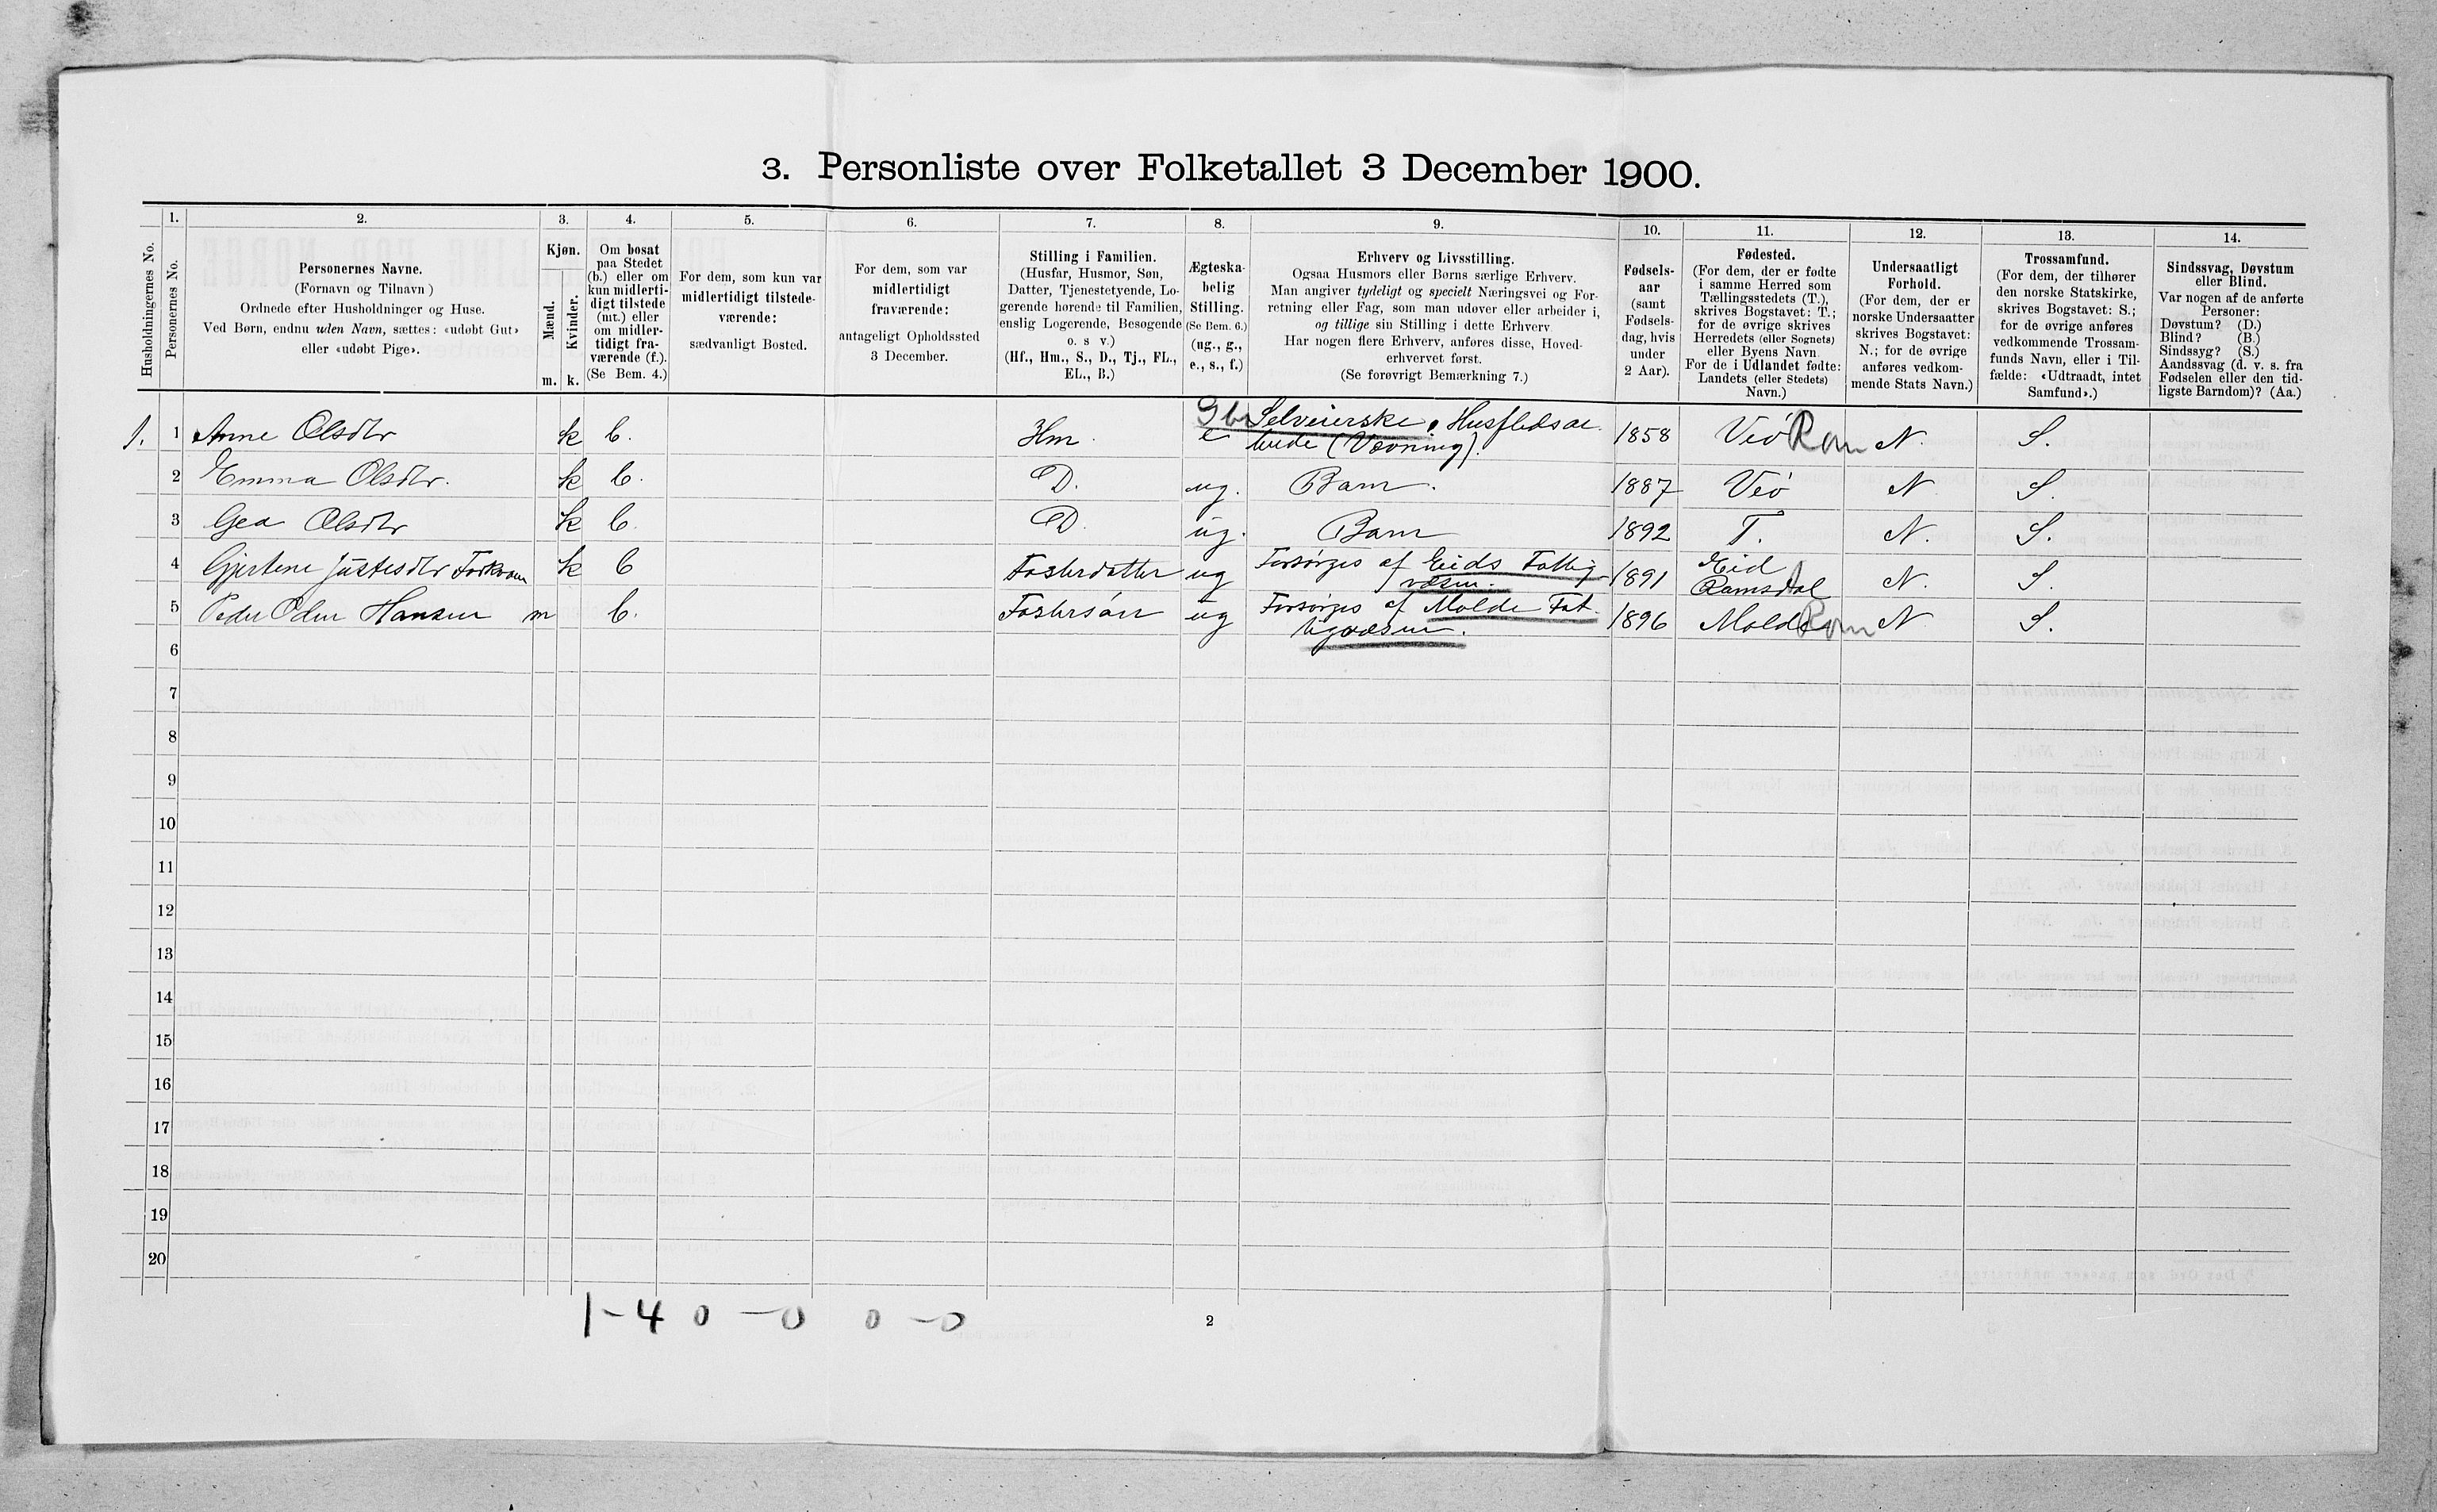 3. Personliste over Folketallet 3 December 1900.
Husholdningernes No.
1.
Personernes No.
2.
Personernes Navne.
(Fornavn og Tilnavn)
Ordnede efter Husholdninger og Huse.
Ved Børn, endnu uden Navn, sættes: «udøbt Gut»
eller «udøbt Pige».
3.
Kjøn.
Mænd.
Kvinder.
m. k.
4.
Om bosat
paa Stedet
(b.) eller om
kun midlerti-
digt tilstede
(mt.) eller
om midler-
tidigt fra-
værende (f.).
(Se Bem. 4.)
5.
For dem, som kun var
midlertidigt tilstede-
værende:
sædvanligt Bosted.
6.
For dem, som var
midlertidigt
fraværende:
antageligt Opholdssted
3 December.
7.
Stilling i Familien.
(Husfar, Husmor, Søn,
Datter, Tjenestetyende, Lo-
gerende hørende til Familien,
enslig Logerende, Besøgende
o. s v.)
(Hf., Hm., S., D., Tj., FL.,
EL., B.)
8.
Ægteska-
belig
Stilling.
(Se Bem. 6.)
(ug., g.,
e., s., f.)
9.
Erhverv og Livsstilling.
Ogsaa Husmors eller Børns særlige Erhverv.
Man angiver tydeligt og specielt Næringsvei og For-
retning eller Fag, som man udøver eller arbeider i,
og tillige sin Stilling i dette Erhverv
Har nogen flere Erhverv, anføres disse, Hoved-
erhvervet først.
(Se forøvrigt Bemærkning 7.)
10.
Fødsels-
aar
(samt
Fødsels-
dag, hvis
under
2 Aar).
11.
Fødested.
(For dem, der er fødte
i samme Herred som
Tællingsstedets (T.),
skrives Bogstavet: T.;
for de øvrige skrives
Herredets (eller Sognets)
eller Byens Navn.
For de i Udlandet fødte:
Landets (eller Stedets)
Navn.)
12.
Undersaatligt
Forhold.
(For dem, der er
norske Undersaatter
skrives Bogstavet:
N.; for de øvrige
anføres vedkom-
mende Stats Navn.)
13.
Trossamfund.
(For dem, der tilhører
den norske Statskirke,
skrives Bogstavet: S.;
for de øvrige anføres
vedkommende Trossam-
funds Navn, eller i Til-
fælde: «Udtraadt, intet
Samfund».)
14.
Sindssvag, Døvstum
eller Blind.
Var nogen af de anførte
Personer:
Døvstum? (D.)
Blind? (B.)
Sindssyg? (S.)
Aandssvag (d. v. s. fra
Fødselen eller den tid-
ligste Barndom)? (Aa.)
1. 1 Anne Olsdtr k b. Hm. e Gbr Selveierske, Husflidsar- 1858 Veö Rom N. S.
beide (Vævning).
2 Emma Olsdtr. k b. D. ug. Barn. 1887 Veö N S.
3 Gea Olsdtr k b. D. ug. Barn 1892 T. N. S.
4 Gjertine Justesdtr Torkvam k b Fosterdatter ug Forsørges af Eids Fattig- 1891 Eid N. S.
væsen. Romsdal
5 Peder Odin Hansen m b. Fostersön ug Forsørges af Molde Fat- 1896 Molde Rom N S.
tigvæsen.
6
7
8
9
10
11
12
13
14
15
16
17
18
19
20
1-4 0 - 0 0 - 0
2